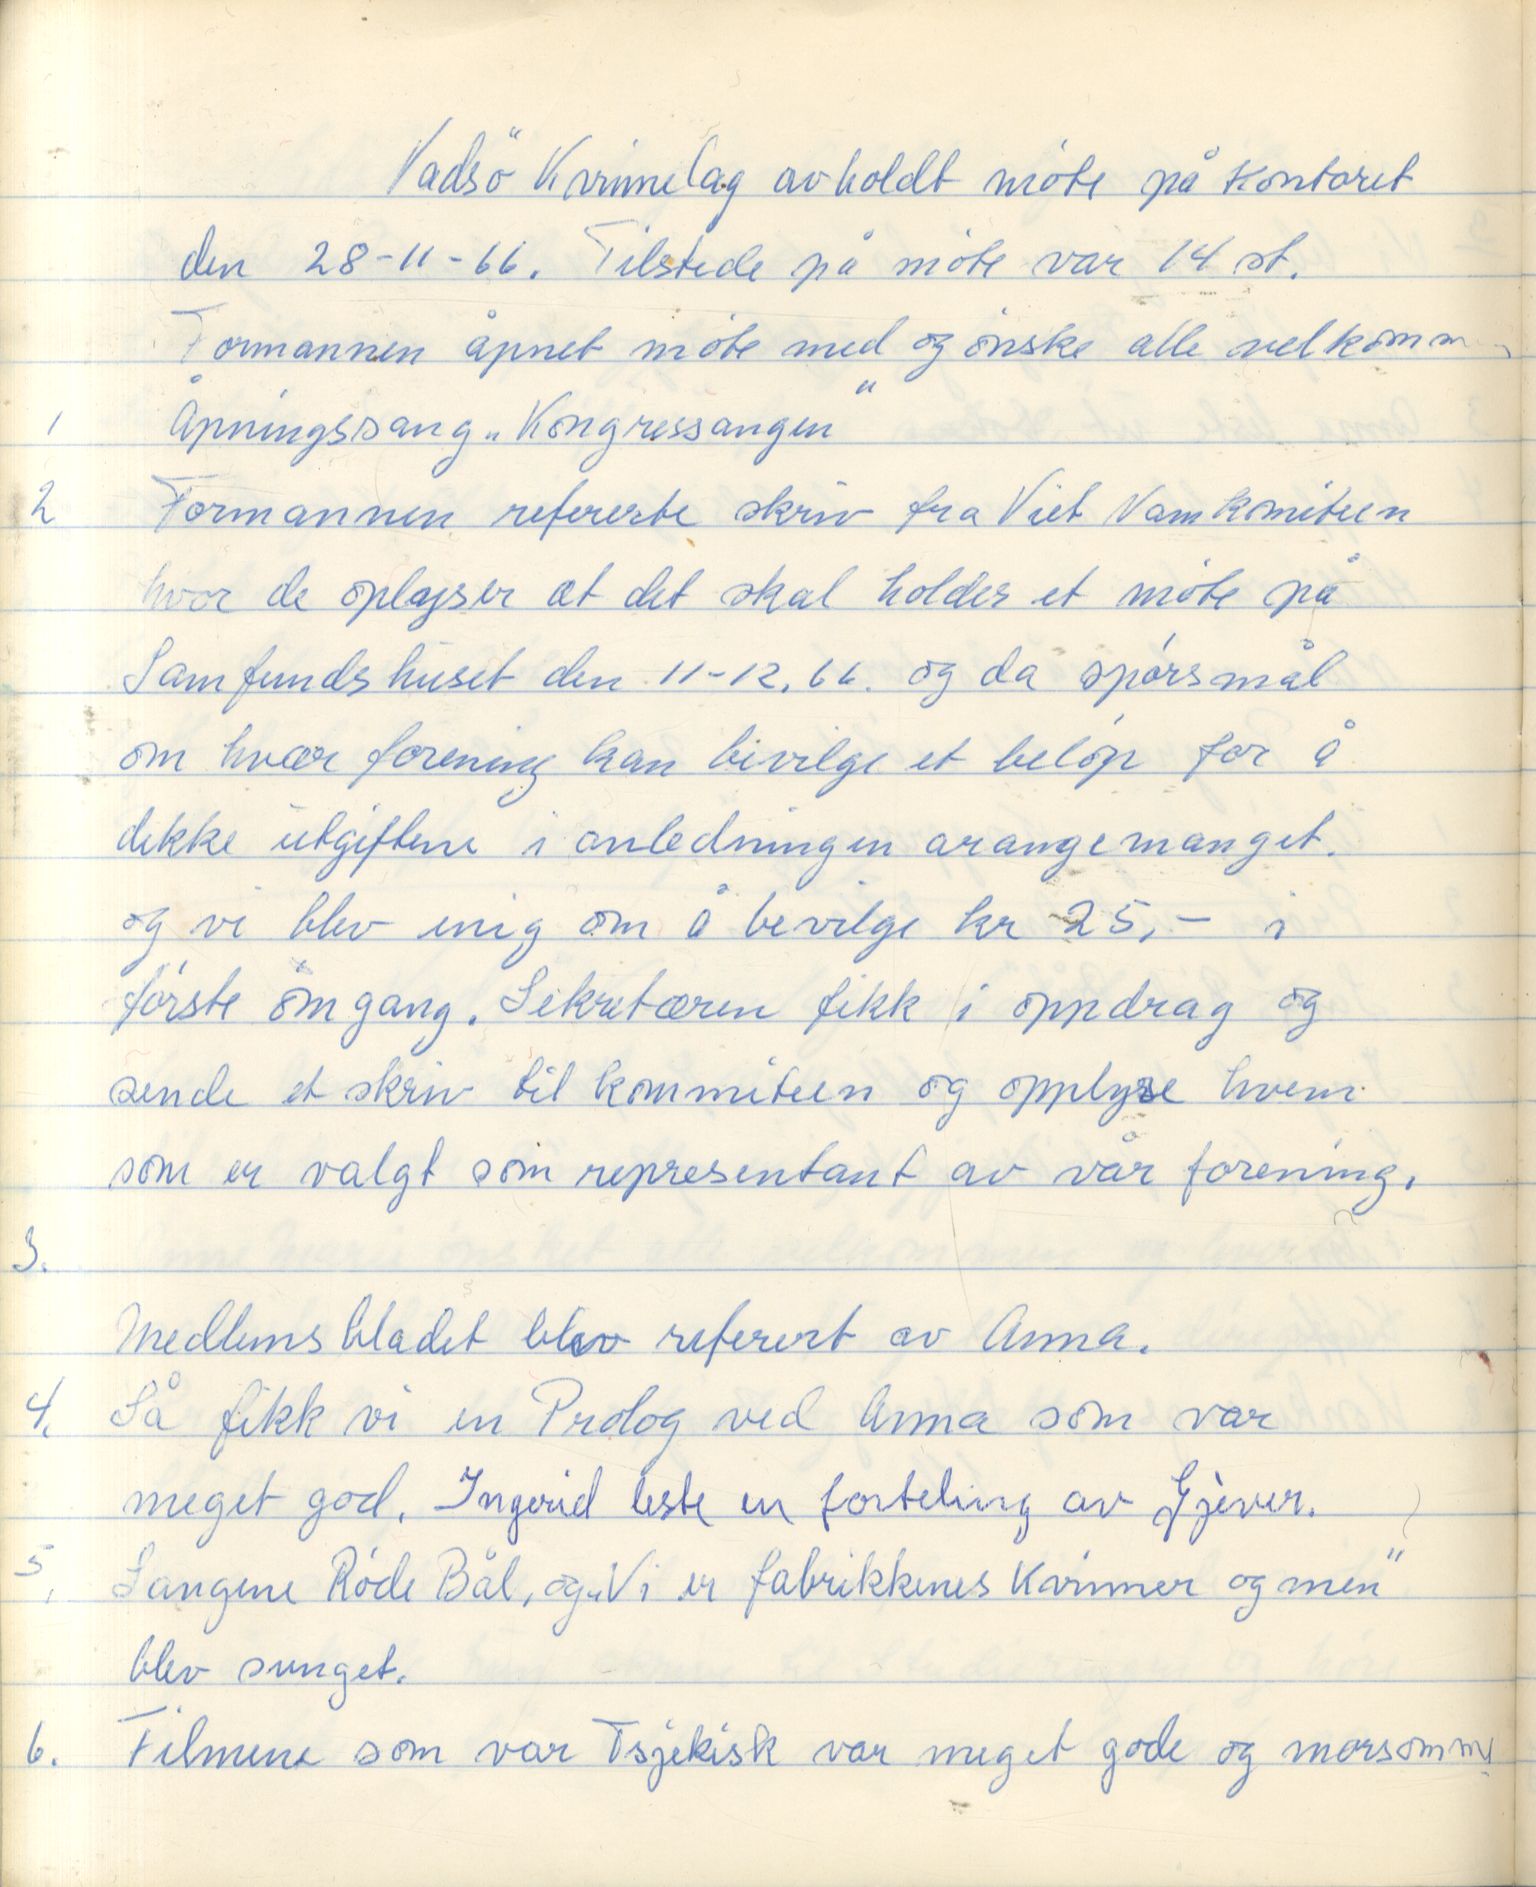 Vadsö Kvinnelag avholdt möte på kontoret
den 28-11-66. Tilstede på möte var 14 st.
Formannen åpnet möte med og önske alle velkomm
1 Åpningssang „Kongressangen"
2 Formannen refererte skriv fra Viet Nam komiteen
hvor de oplyser at det skal holdes et möte på
Samfundshuset den 11-12.66. og da spörsmål
om hvær forening kan bivilge et belöp for å
dekke utgiftene i anledningen arangemanget.
og vi blev enig om å bevilge kr 25,- i
förste omgang. Sekretæren fikk i oppdrag og
sende et skriv til kommiteen og opplyse hvem
som er valgt som representant av vår forening.
3.
Medlemsbladet blev referert av Anna.
4. Så fikk vi en Prolog ved Anna som var
meget god. Ingerid leste en forteling av Gjever.
5. Sangene Röde Bål, og „Vi er fabrikkenes Kvinner og men"
blev sunget.
6. Filmene som var Tsjekisk var meget gode og morsomme